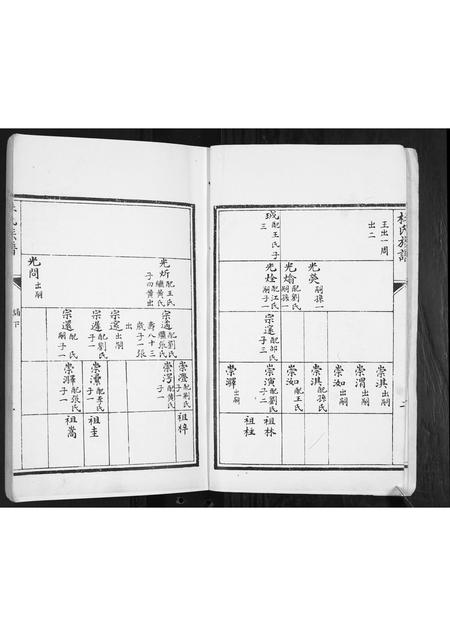 杜氏族譜
王出一周
出二
光熒 嗣孫一
光熻 配劉氏 嗣孫一
光烇 配江氏 嗣子一
珹 配王氏子三
宗寔 配邵氏 子三
崇淇 出嗣
崇渭 出嗣
崇如 出嗣
崇淇 配孫氏
崇如 配王氏
崇演 配劉氏 子二
崇澤 出嗣
祖林
祖柱
光炘 配王氏 繼黃氏 子四黃出
光問 出嗣
宗適 配劉氏 繼張氏 壽八十三歲 子一張出
宗寔 出嗣
宗選 配劉氏 子一
宗還 配氏 嗣子一
崇澄 配劉氏 子一
崇澇 配黃氏 子一
崇瀠 配李氏 子一
崇澤 配張氏 子一
祖梓
祖圭
祖嵩